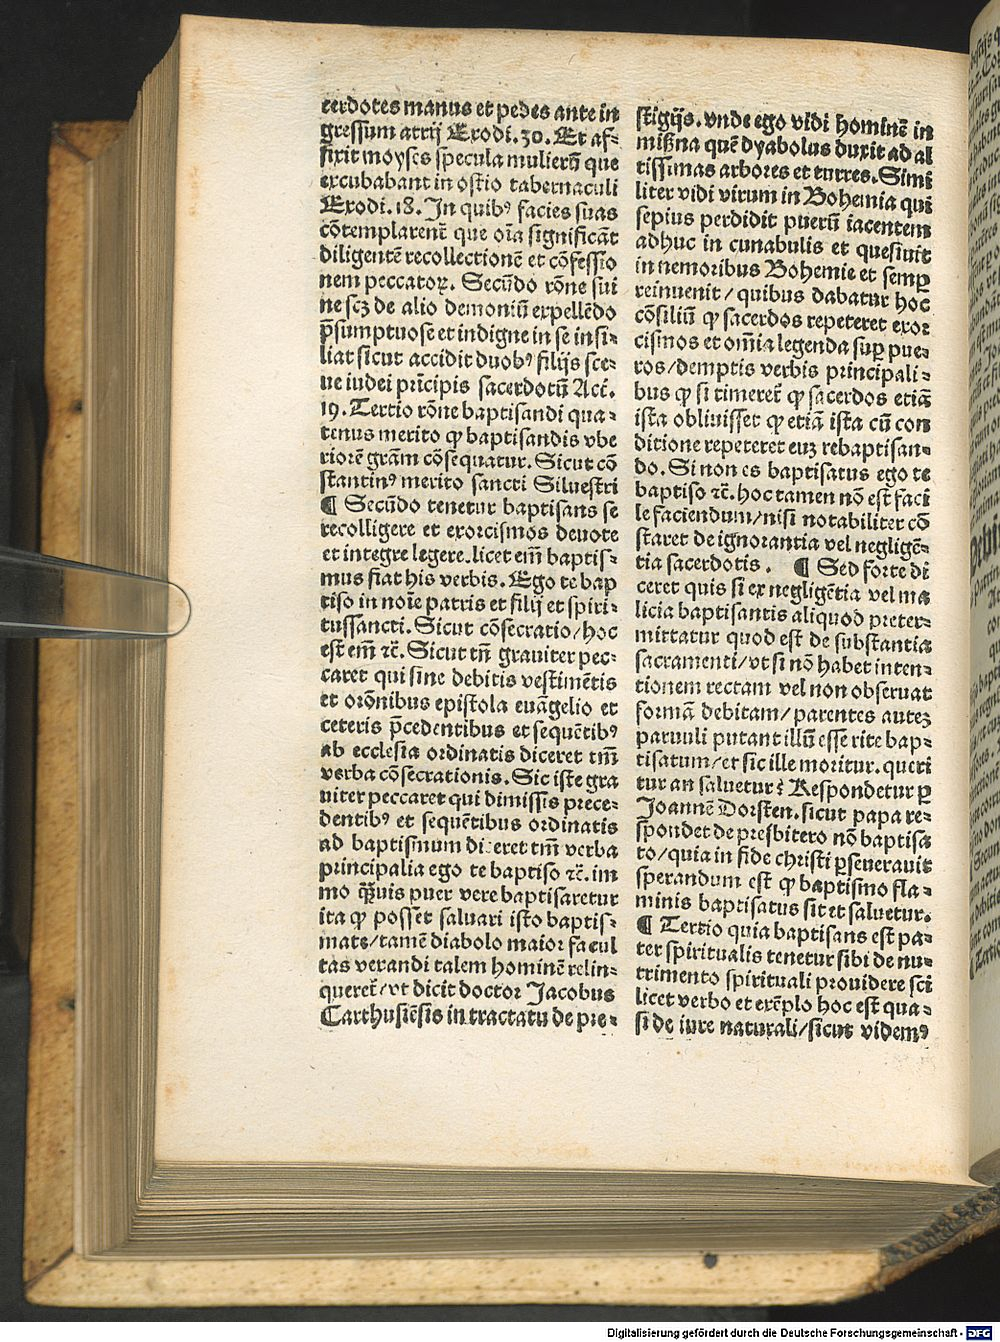 cerdotes manus et pedes ante in
gressum atrij Exodi.30. Et af⸗
fixit moyses specula mulierū que
excubabant in ostio tabernaculi
Exodi.18. In quibꝰ facies suas
cōtemplarent̄ que oīa significāt
diligentē recollectionē et cōfessio
nem peccatoꝝ. Secūdo rōne sui
ne scꝫ de alio demoniū expellēdo
p̄sumptuose et indigne in se insi⸗
liat sicut accidit duobꝰ filijs sce⸗
ue iudei prīcipis sacerdotū Act̄.
19. Tertio rōne baptisandi qua⸗
tenus merito ꝙ baptisandis vbe
riorē grām cōsequatur. Sicut cō
stantinꝰ merito sancti Siluestri
¶ Secūdo tenetur baptisans se
recolligere et exorcismos deuote
et integre legere. licet em̄ baptis⸗
mus fiat his verbis. Ego te bap
tiso in noīe patris et filij et spiri⸗
tussancti. Sicut cōsecratio/hoc
est em̄ ⁊c̄. Sicut tn̄ grauiter pec⸗
caret qui sine debitis vestimētis
et orōnibus epistola euāgelio et
ceteris p̄cedentibus et sequētibꝰ
ab ecclesia ordinatis diceret tm̄
verba cōsecrationis. Sic iste gra
uiter peccaret qui dimissis prece⸗
dentibꝰ et sequētibus ordinatis
ad baptismum diceret tm̄ verba
principalia ego te baptiso ⁊c̄. im
mo q̄uis puer vere baptisaretur
ita ꝙ posset saluari isto baptis⸗
mate/tamē diabolo maior facul
tas vexandi talem hominē relin⸗
queret̄/vt dicit doctor Jacobus
Carthusiēsis in tractatu de pre⸗
stigijs. vnde ego vidi hominē in
mißna quē dyabolus duxit ad al
tissimas arbores et turres. Simi
liter vidi virum in Bohemia qui
sepius perdidit puerū iacentem
adhuc in cunabulis et quesiuit
in nemoribus Bohemie et semꝑ
reinuenit/quibus dabatur hoc
cōsiliū ꝙ sacerdos repeteret exor
cismos et om̄ia legenda suꝑ pue⸗
ros/demptis verbis principali⸗
bus ꝙ si timeret̄ ꝙ sacerdos etiā
ista obliuisset ꝙ etiā ista cū con
ditione repeteret euꝫ rebaptisan⸗
do. Si non es baptisatus ego te
baptiso ⁊c̄. hoc tamen nō est faci
le faciendum/nisi notabiliter cō
staret de ignorantia vel negligē⸗
tia sacerdotis. ¶ Sed forte di
ceret quis si ex negligētia vel ma
licia baptisantis aliquod preter⸗
mittatur quod est de substantia
sacramenti/vt si nō habet inten⸗
tionem rectam vel non obseruat
formā debitam/parentes auteꝫ
paruuli putant illū esse rite bap⸗
tisatum/et sic ille moritur. queri
tur an saluetur? Respondetur ꝑ
Joannē Dorsten. sicut papa re⸗
spondet de presbitero nō baptisa
to/quia in fide christi ꝑseuerauit
sperandum est ꝙ baptismo fla⸗
minis baptisatus sit et saluetur.
¶ Tertio quia baptisans est pa⸗
ter spiritualis tenetur sibi de nu⸗
trimento spirituali prouidere sci
licet verbo et exēplo hoc est qua⸗
si de iure naturali/sicut videmꝰ
Digitalisierung gefördert durch die Deutsche Forschungsgemeinschaft - DFG